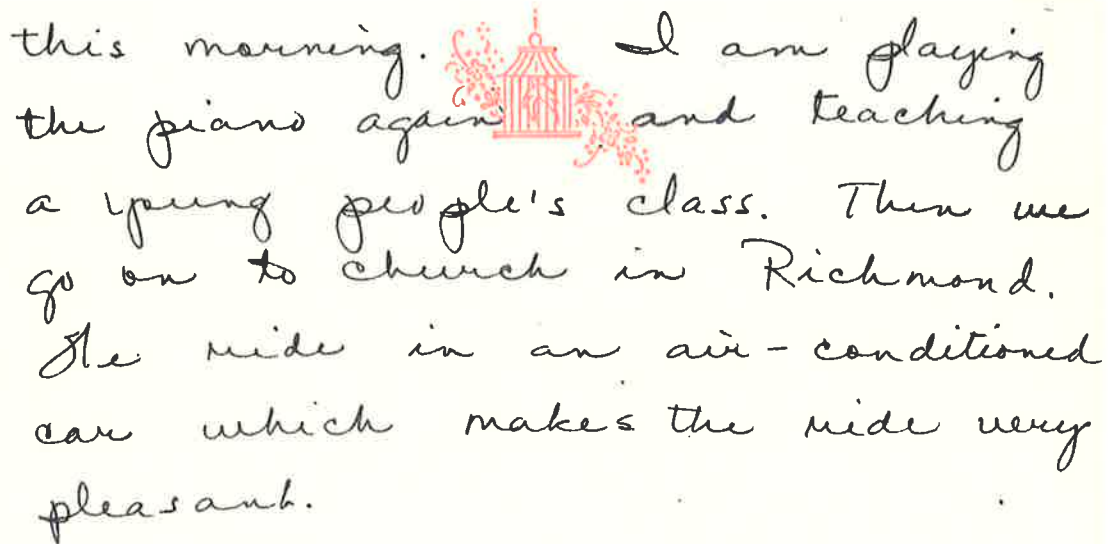 this morning. I am playing
the piano again and teaching
a young people's class. Then we
go on to church in Richmond.
We ride in an air-conditioned
car which makes the ride very
pleasant.